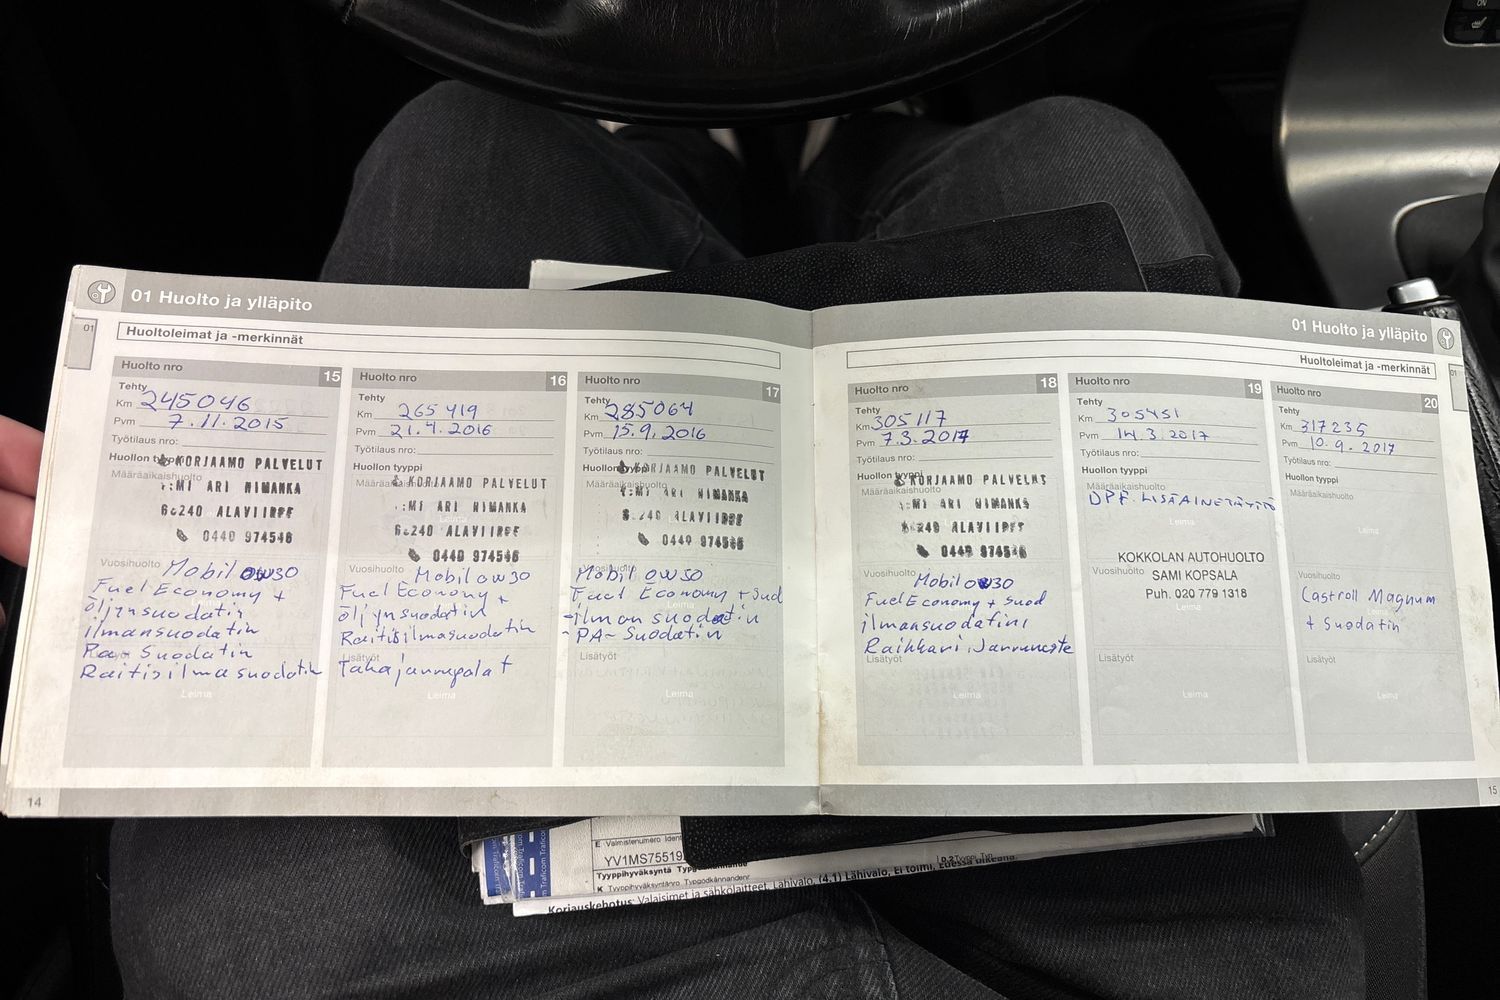 01 Huolto ja ylläpito
01
Huoltoleimat ja -merkinnät
Huolto nro 15
Tehty
Km 245046
Pvm 7.11.2015
Työtilaus nro:
KORJAAMO PALVELUT
T:MI ARI HIMANKA
ALAVIIRRE
0440 974546
Vuosihuolto Mobil 0W30
Fuel Economy +
öljynsuodatin
ilmansuodatin
Suodatin
Raitisilmasuodatin
Leima
Huolto nro 16
Tehty
Km 265419
Pvm 21.4.2016
Työtilaus nro:
Huollon tyyppi
Määräaikaishuolto
KORJAAMO PALVELUT
T:MI ARI HIMANKA
ALAVIIRRE
0440 974546
Vuosihuolto Mobil 0W30
Fuel Economy +
öljynsuodatin
Raitisilmasuodatin
Lisätyöt
Takajarrupalat
Leima
Huolto nro 17
Tehty
Km 285064
Pvm 15.9.2016
Työtilaus nro:
KORJAAMO PALVELUT
T:MI ARI HIMANKA
ALAVIIRRE
0440 974546
Mobil 0W30
Fuel Economy + Suod
- ilman suodatin
- PA- Suodatin
Lisätyöt
Leima
14
01 Huolto ja ylläpito
01
Huoltoleimat ja -merkinnät
Huolto nro 18
Tehty
Km 305117
Pvm 7.3.2017
Työtilaus nro:
Huollon tyyppi
Määräaikaishuolto
KORJAAMO PALVELUT
T:MI ARI HIMANKA
ALAVIIRRE
0440 974546
Vuosihuolto Mobil 0W30
Fuel Economy + Suod
ilmansuodatin
Raikkari, Jarruneste
Lisätyöt
Leima
Huolto nro 19
Tehty
Km 305451
Pvm 14.3.2017
Työtilaus nro:
Huollon tyyppi
Määräaikaishuolto
DPF. LISÄAINETÄYTTÖ
Leima
KOKKOLAN AUTOHUOLTO
Vuosihuolto SAMI KOPSALA
Puh. 020 779 1318
Leima
Lisätyöt
Leima
Huolto nro 20
Tehty
Km 317235
Pvm 10.9.2017
Työtilaus nro:
Huollon tyyppi
Määräaikaishuolto
Leima
Vuosihuolto
Castroll Magnum
+ Suodatin
Lisätyöt
Leima
15
E Valmistenumero Ident
YV1MS75519
Tyyppihyväksyntä
K Tyyppihyväksyntänro Typgodkännandenr
Korjauskehotus: Valaisimet ja sähkölaitteet, Lähivalo, (4.1) Lähivalo, Ei toimi, Edessä oikeana.